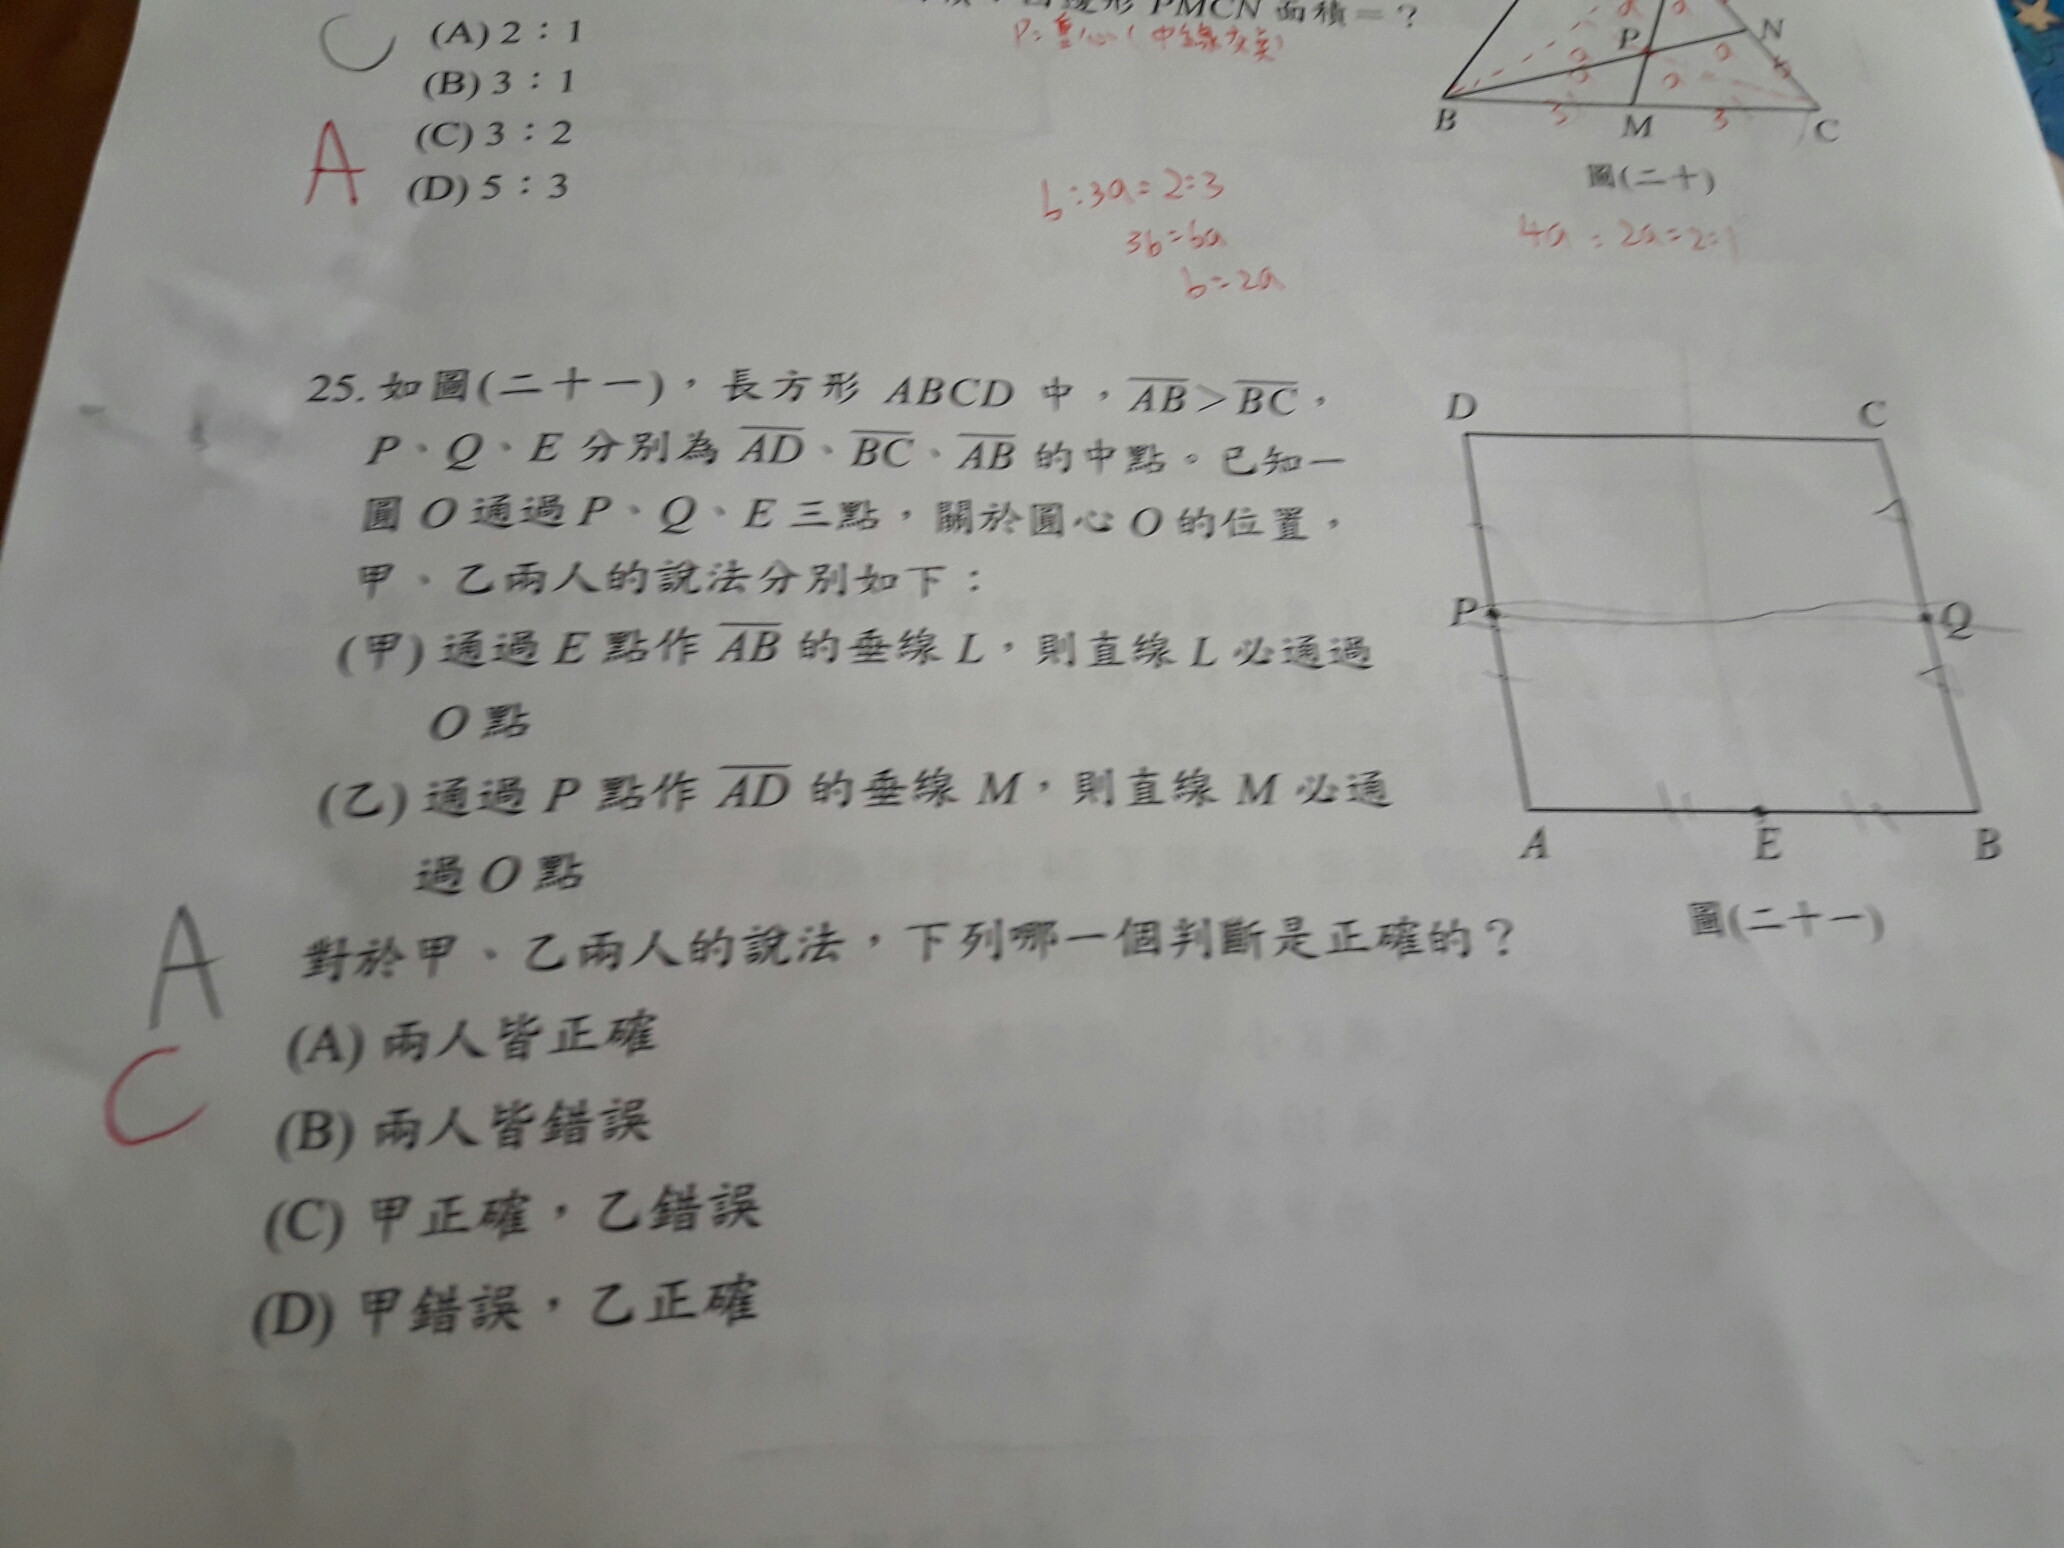 四邊形 PMCN 面積=?
P=重心(中線交點)
C
(A) 2:1
(B) 3:1
(C) 3:2
(D) 5:3
A
b:3a=2:3
3b=6a
b=2a
P
N
B
M
C
a
a
a
a
a
a
b
3
3
圖(二十)
4a:2a=2:1
25. 如圖(二十一),長方形 ABCD 中,AB>BC,
P、Q、E 分別為 AD、BC、AB 的中點。已知一
圓 O 通過 P、Q、E 三點,關於圓心 O 的位置,
甲、乙兩人的說法分別如下:
(甲) 通過 E 點作 AB 的垂線 L,則直線 L 必通過
O 點
(乙) 通過 P 點作 AD 的垂線 M,則直線 M 必通
過 O 點
對於甲、乙兩人的說法,下列哪一個判斷是正確的?
A
C
(A) 兩人皆正確
(B) 兩人皆錯誤
(C) 甲正確,乙錯誤
(D) 甲錯誤,乙正確
D
C
P
Q
A
E
B
圖(二十一)